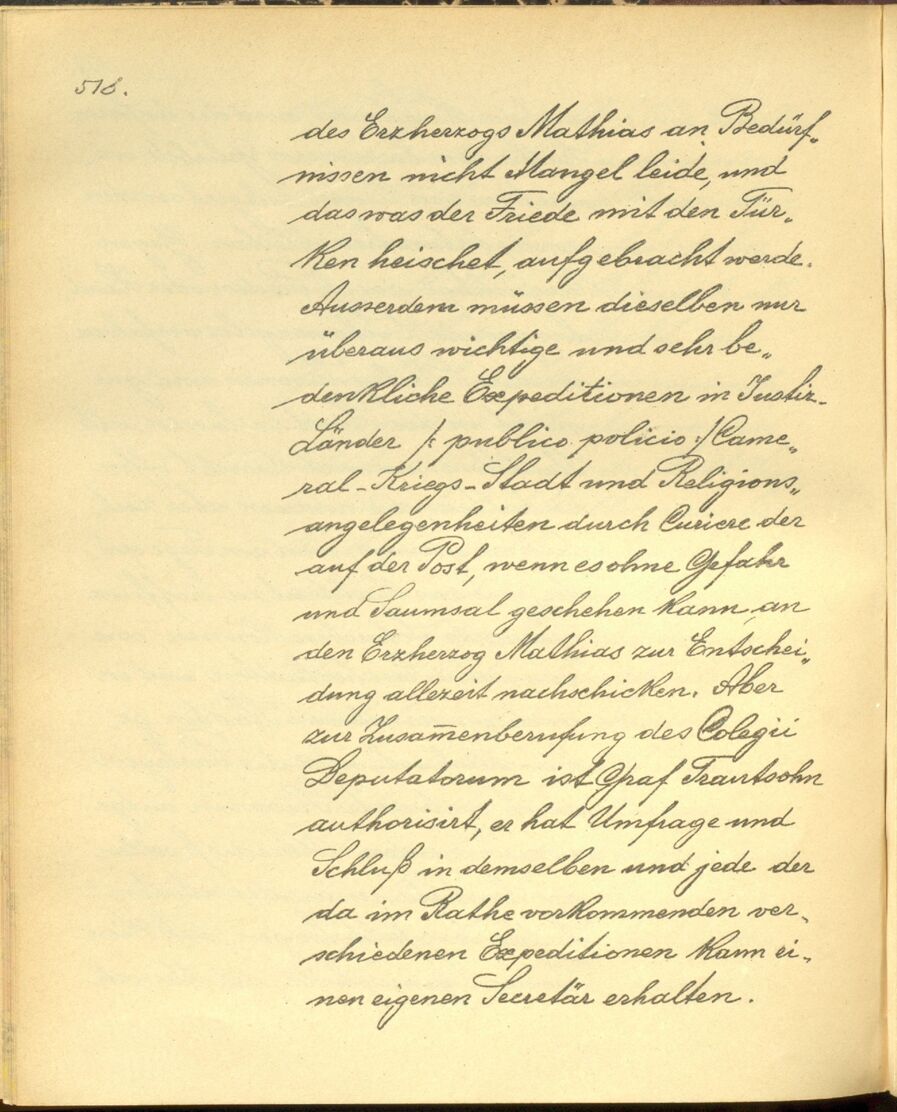 518.
des Erzherzogs Mathias an Bedürf„
nissen nicht Mangel leide, und
das was der Friede mit den Tür„
ken heischet, aufgebracht werde.
Ausserdem müssen dieselben nur
überaus wichtige und sehr be„
denkliche Expeditionen in Justiz-
Länder /: publico policio :/ Came„
ral-Kriegs-Stadt und Religions„
angelegenheiten durch Curiere der
auf der Post, wenn es ohne Gefahr
und Saumsal geschehen kann, an
den Erzherzog Mathias zur Entschei„
dung allezeit nachschicken. Aber
zur Zusam̄enberufung des Colegii
Deputatorum ist Graf Trautsohn
authorisirt, er hat Umfrage und
Schluß in demselben und jede der
da im Rathe vorkommenden ver„
schiedenen Expeditionen kann ei„
nen eigenen Secretär erhalten.